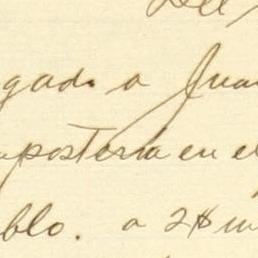 Del
gada a Juan
posteria en el
blo. a 2$